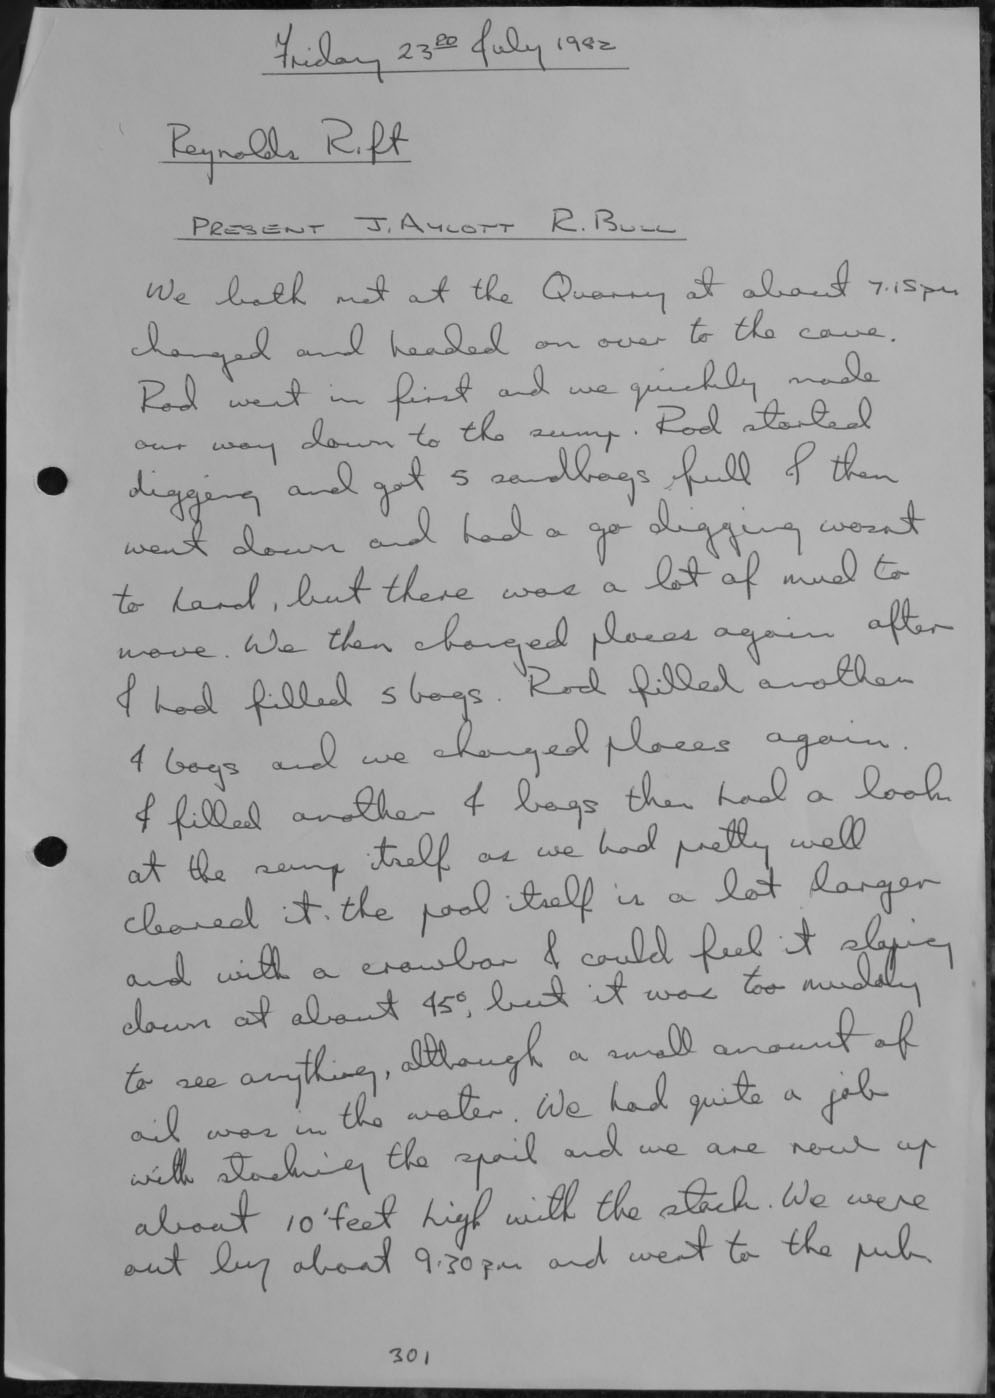 Friday 23RD July 1982
Reynolds Rift
PRESENT J. AYLOTT R. BULL
We both met at the Quarry at about 7.15pm
changed and headed on over to the cave.
Rod went in first and we quickly made
our way down to the sump. Rod started
digging and got 5 sandbags full I then
went down and had a go digging wasnt
to hard, but there was a lot of mud to
move. We then changed places again after
I had filled 5 bags. Rod filled another
4 bags and we changed places again.
I filled another 4 bags then had a look
at the sump itself as we had pretty well
cleared it. the pool itself is a lot larger
and with a crowbar I could feel it sloping
down at about 45°, but it was too muddy
to see anything, although a small amount of
oil was in the water. We had quite a job
with stacking the spoil and we are now up
about 10 'feet high with the stack. We were
out by about 9.30pm and went to the pub
301